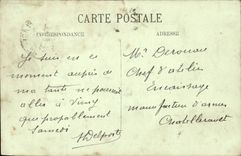 CARTE POSTALE
CORRESPONDANCE
ADRESSE
Je suis en ce
moment auprès de
ma tante ne pourrai
aller à Vincy
que probablement
Samedi
Delporte
Mr Derouau
Chef d'atelier
Encaissage
manufacture d'armes
Chatellerault